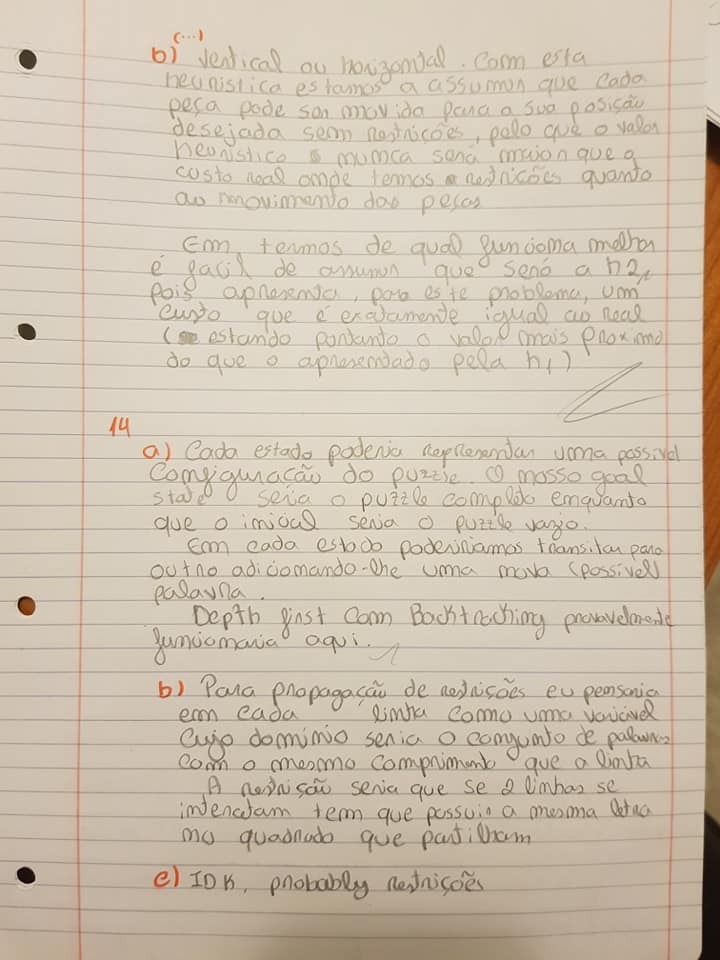 (...)
b) Vertical ou horizontal. Com esta
heuristica estamos a assumir que cada
peça pode ser movida para a sua posição
desejada sem restrições, pelo que o valor
heuristico nunca será maior que o
custo real onde temos restrições quanto
ao movimento das peças
Em termos de qual funciona melhor
é facil de assumir que será a h2,
pois apresenta, para este problema, um
custo que é exatamente igual ao real
(estando portanto o valor mais proximo
do que o apresentado pela h1)
14
a) Cada estado poderia representar uma possivel
configuração do puzzle. O nosso goal
state seria o puzzle completo enquanto
que o inicial seria o puzzle vazio.
Em cada estado podeririamos transitar para
outro adicionando-lhe uma nova (possivel)
palavra.
Depth first com Backtraching provavelmente
funcionaria aqui.
b) Para propagação de restrições eu pensaria
em cada linha como uma variável
cujo dominio seria o conjunto de palavras
com o mesmo comprimento que a linha
A restrição seria que se 2 linhas se
intercetam tem que possuir a mesma letra
no quadrado que partilham
c) IDK, probably restrições